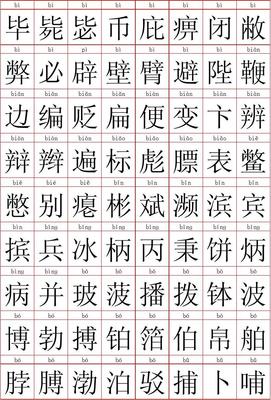 bì bì bì bì bì bì bì bì
毕 毙 毖 币 庇 痹 闭 敝
bì bì pì bì bì bì bì biān
弊 必 辟 壁 臂 避 陛 鞭
biān biān biǎn biǎn biàn biàn biàn biàn
边 编 贬 扁 便 变 卞 辨
biàn biàn biàn biāo biāo biāo biǎo biē
辩 辫 遍 标 彪 膘 表 鳖
biē bié biě bīn bīn bīn bīn bīn
憋 别 瘪 彬 斌 濒 滨 宾
bìn bīng bīng bǐng bǐng bǐng bǐng bǐng
摈 兵 冰 柄 丙 秉 饼 炳
bìng bìng bō bō bō bō bō bō
病 并 玻 菠 播 拨 钵 波
bó bó bó bó bó bó bó bó
博 勃 搏 铂 箔 伯 帛 舶
bó bó bó bó bó bǔ bǔ bǔ
脖 膊 渤 泊 驳 捕 卜 哺